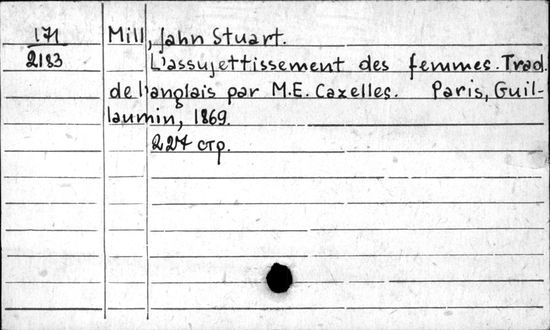 171 Mill, John Stuart.
2183 L'assujettissement des femmes. Trad.
de l'anglais par M.E. Cazelles. Paris, Guil-
laumin, 1869.
227 стр.